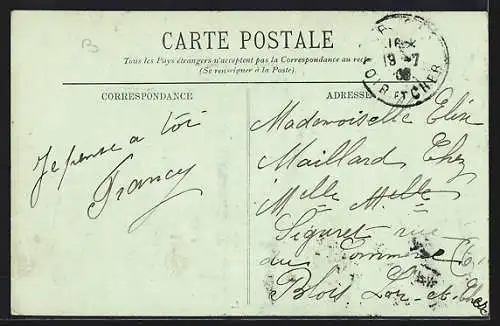 B
CARTE POSTALE
Tous les Pays étrangers n'acceptent pas la Correspondance au recto
(Se renseigner à la Poste).
CORRESPONDANCE
ADRESSE
19-7
LOIR ET CHER
Je pense a toi
Francy
Mademoiselle Elise
Maillard Chez
Melle
Séguret rue
du Commerce
Blois Loir-et-Cher